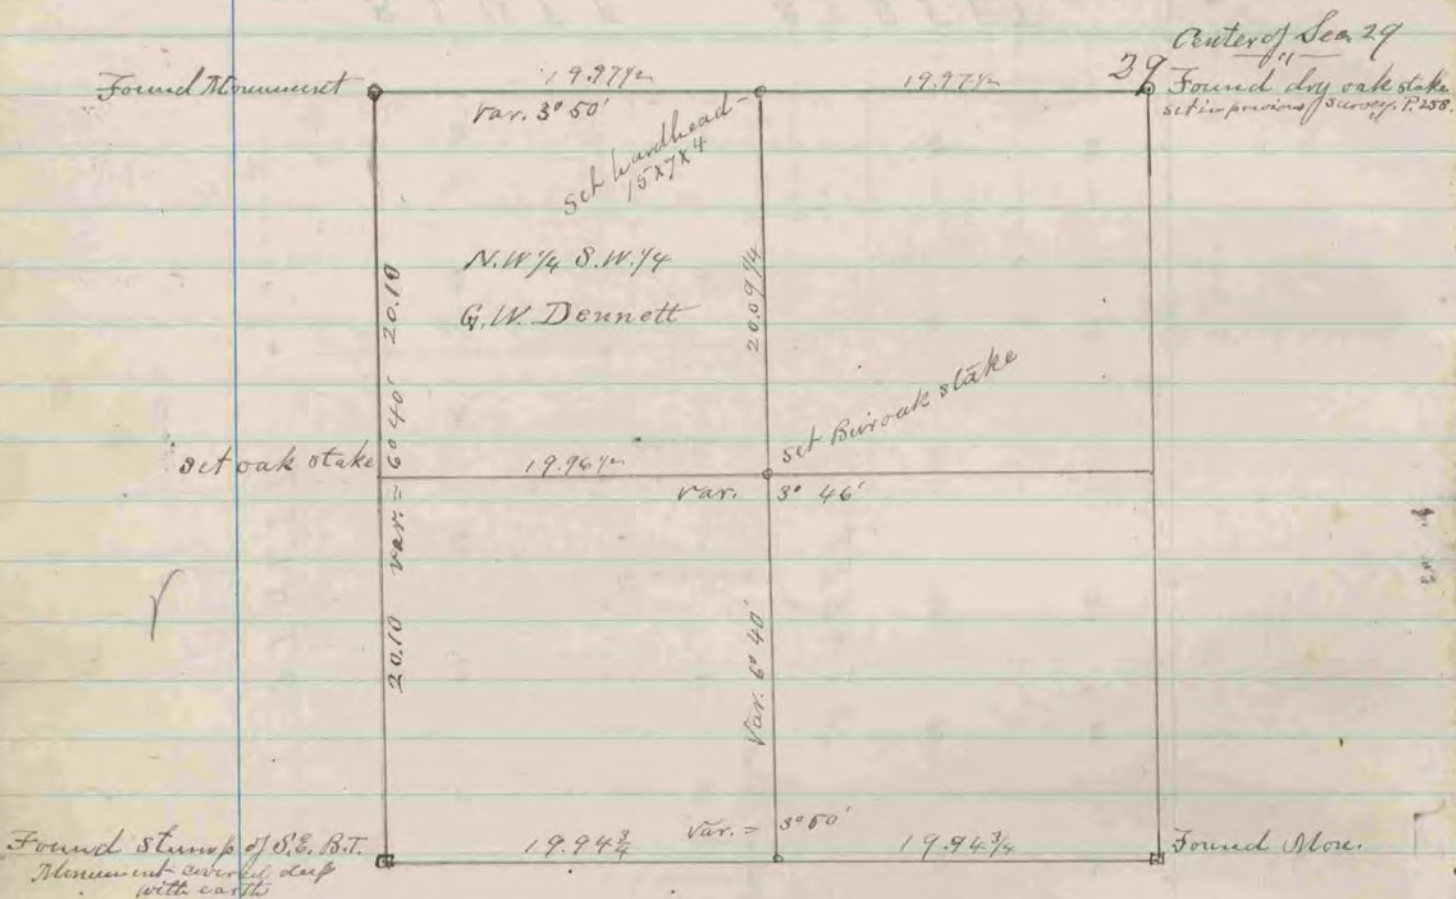 Center of Sec. 29
"
Found Monument
19.97½
19.97½
29
Found dry oak stake
set in previous survey. P. 258.
Var. 3° 50'
set hardhead
15x7x4
N.W. ¼ S.W. ¼
G.W. Dennett
20.10
20.09 ¼
set Bur oak stake
set oak stake
var. = 6° 40'
19.96½
var. 3° 46'
20.10
Var. 6° 40'
Found stump of S.E. B.T.
Monument covered deep
with earth
19.94¾
Var. = 3° 50'
19.94¾
Found Mon.